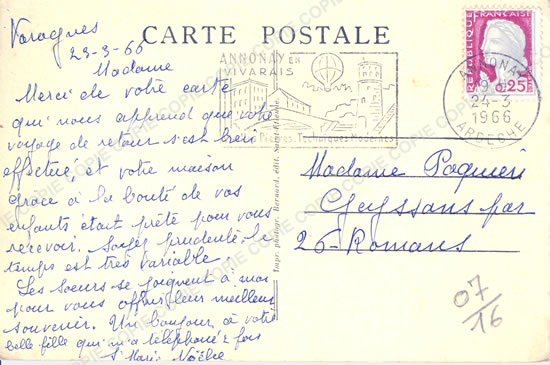 CARTE POSTALE
Varagnes
23-3-66
Madame
Merci de votre carte
qui nous apprend que votre
voyage de retour s'est bien
effectué, et votre maison
grace à la bonté de vos
enfants était prête pour vous
recevoir. Soyez prudente, le
temps est très variable.
Les Soeurs se joignent à moi
pour vous offrir leur meilleur
souvenir. Un bonjour à votre
belle fille qui m'a téléphoné 2 fois
Sr Marie Noëlie
ANNONAY EN
VIVARAIS
Techniques Modernes
REPUBLIQUE FRANÇAISE
0,25
ANNONAY
19 H
24-3
1966
ARDECHE
Impr. photogr.
édit. Saint-Etienne
Madame
Geyssans par
26-Romans
07
/16
COPIE COPIE COPIE COPIE